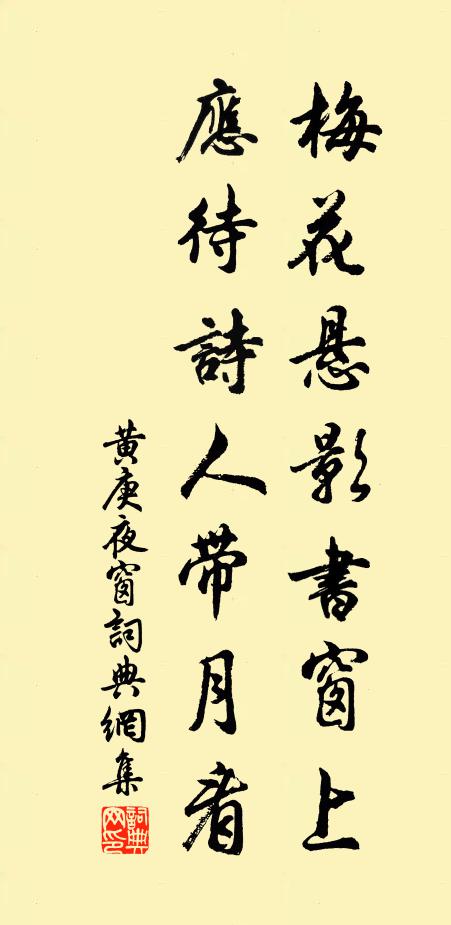 梅花悬影書窗上
應待詩人带月看
黄庚夜窗詞典網集
詞典網印